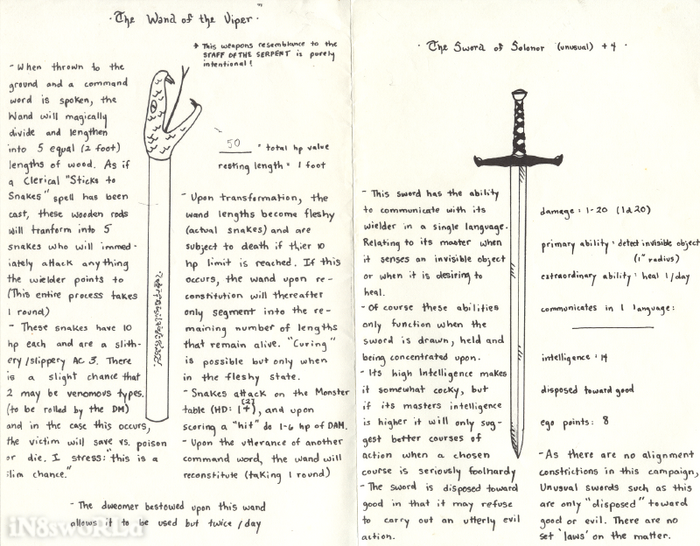 · The Wand of the Viper ·
* This weapons resemblance to the
STAFF OF THE SERPENT is purely
intentional!
- When thrown to the
ground and a command
word is spoken, the
Wand will magically
divide and lengthen
into 5 equal (2 foot)
lengths of wood. As if
a Clerical "Sticks to
Snakes" spell has been
cast, these wooden rods
will tranform into 5
snakes who will immed-
iately attack anything
the wielder points to
(This entire process takes
1 round)
- These snakes have 10
hp each and are a slith-
ery/slippery AC 5. There
is a slight chance that
2 may be venomous types.
(to be rolled by the DM)
and in the case this occurs,
the victim will save vs. poison
or die. I stress: "this is a
slim chance."
50 * total hp value
resting length * 1 foot
- Upon transformation, the
wand lengths become fleshy
(actual snakes) and are
subject to death if thier 10
hp limit is reached. If this
occurs, the wand upon re-
constitution will thereafter
only segment into the re-
maining number of lengths
that remain alive. "Curing"
is possible but only when
in the fleshy state.
- Snakes attack on the Monster
table (HD: 1+(2)), and upon
scoring a "hit" do 1-6 hp of DAM.
- Upon the utterance of another
command word, the wand will
reconstitute (taking 1 round)
- The dweomer bestowed upon this wand
allows it to be used but twice / day
iN8sWORLd
· The Sword of Solonor (unusual) +4 ·
- This sword has the ability
to communicate with its
wielder in a single language.
Relating to its master when
it senses an invisible object
or when it is desiring to
heal.
- Of course these abilities
only function when the
sword is drawn, held and
being concentrated upon.
- Its high Intelligence makes
it somewhat cocky, but
if its masters intelligence
is higher it will only sug-
gest better courses of
action when a chosen
course is seriously foolhardy
- The sword is disposed toward
good in that it may refuse
to carry out an utterly evil
action.
damage: 1-20 (1d20)
primary ability: detect invisible object
(1" radius)
extraordinary ability: heal 1/day
communicates in 1 language:
intelligence: 14
disposed toward good
ego points: 8
- As there are no alignment
constrictions in this campaign,
Unusual swords such as this
are only "disposed" toward
good or evil. There are no
set 'laws' on the matter.